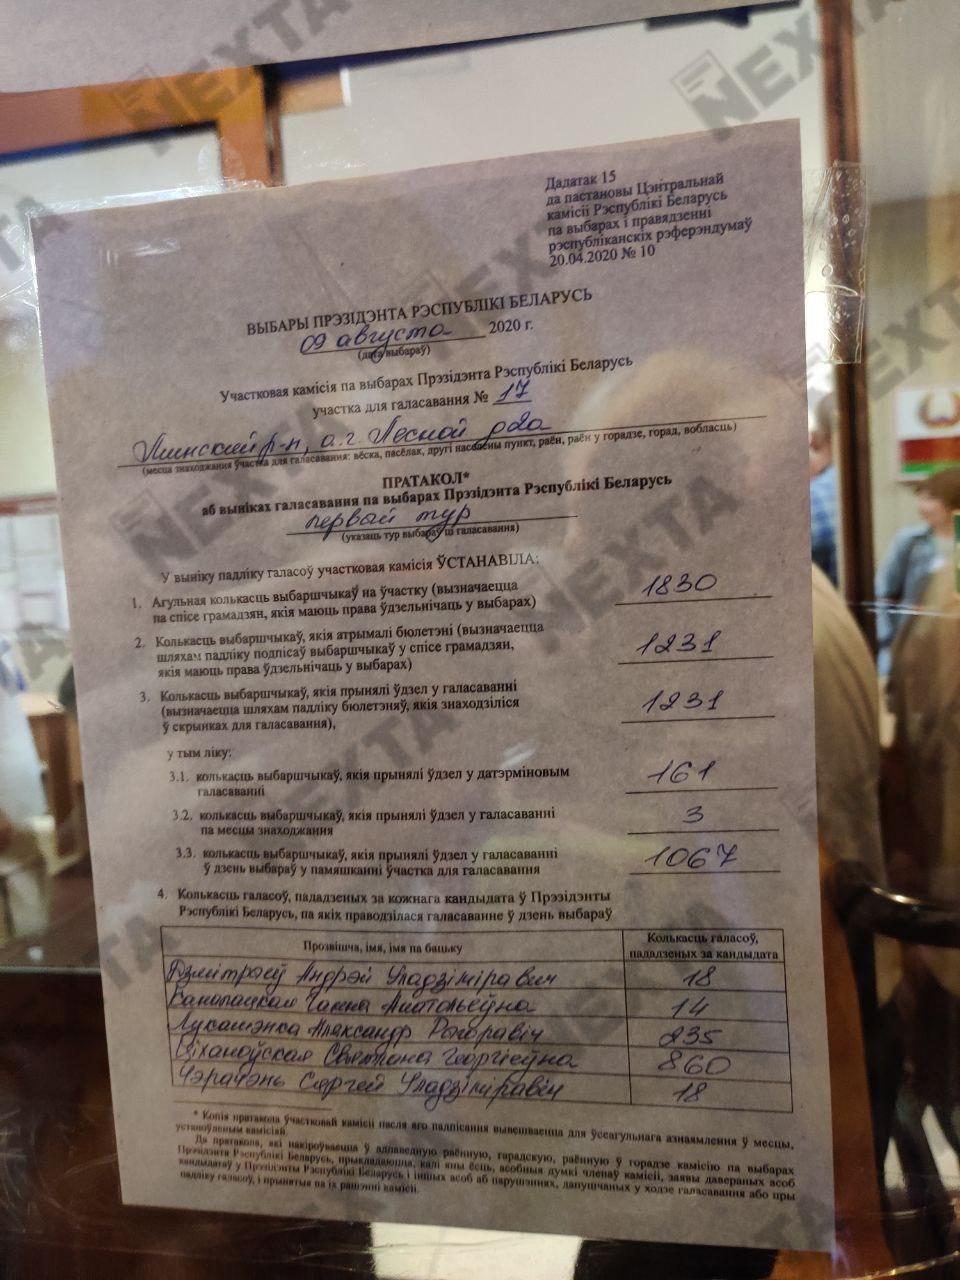 NEXTA
Дадатак 15
да пастановы Цэнтральнай
камісіі Рэспублікі Беларусь
па выбарах і правядзенні
рэспубліканскіх рэферэндумаў
20.04.2020 № 10
ВЫБАРЫ ПРЭЗІДЭНТА РЭСПУБЛІКІ БЕЛАРУСЬ
09 августа 2020 г.
(дата выбараў)
Участковая камісія па выбарах Прэзідэнта Рэспублікі Беларусь
участка для галасавання № 17
Минский р-н, а.г. Лесной
(месца знаходжання ўчастка для галасавання: вёска, пасёлак, другі населены пункт, раён, раён у горадзе, горад, вобласць)
ПРАТАКОЛ*
аб выніках галасавання па выбарах Прэзідэнта Рэспублікі Беларусь
первый тур
(указаць тур выбараў ці галасавання)
У выніку падліку галасоў участковая камісія ЎСТАНАВІЛА:
1. Агульная колькасць выбаршчыкаў на ўчастку (вызначаецца
па спісе грамадзян, якія маюць права ўдзельнічаць у выбарах) 1830
2. Колькасць выбаршчыкаў, якія атрымалі бюлетэні (вызначаецца
шляхам падліку подпісаў выбаршчыкаў у спісе грамадзян,
якія маюць права ўдзельнічаць у выбарах) 1231
3. Колькасць выбаршчыкаў, якія прынялі ўдзел у галасаванні
(вызначаецца шляхам падліку бюлетэняў, якія знаходзіліся
ў скрынках для галасавання), 1231
у тым ліку:
3.1. колькасць выбаршчыкаў, якія прынялі ўдзел у датэрміновым
галасаванні 161
3.2. колькасць выбаршчыкаў, якія прынялі ўдзел у галасаванні
па месцы знаходжання 3
3.3. колькасць выбаршчыкаў, якія прынялі ўдзел у галасаванні
ў дзень выбараў у памяшканні ўчастка для галасавання 1067
4. Колькасць галасоў, пададзеных за кожнага кандыдата ў Прэзідэнты
Рэспублікі Беларусь, па якіх праводзілася галасаванне ў дзень выбараў
Прозвішча, імя, імя па бацьку Колькасць галасоў,
пададзеных за кандыдата
Дзмітрыеў Андрэй Уладзіміравіч 18
Канапацкая Ганна Анатольеўна 14
Лукашэнка Аляксандр Рыгоравіч 235
Ціханоўская Святлана Георгіеўна 860
Чэрачэнь Сяргей Уладзіміравіч 18
* Копія пратакола ўчастковай камісіі пасля яго падпісання вывешваецца для ўсеагульнага азнаямлення ў месцы,
устаноўленым камісіяй.
Да пратакола, які накіроўваецца ў адпаведную раённую, гарадскую, раённую ў горадзе камісію па выбарах
Прэзідэнта Рэспублікі Беларусь, прыкладаюцца, калі яны ёсць, асобныя думкі членаў камісіі, заявы давераных асоб
кандыдатаў у Прэзідэнты Рэспублікі Беларусь і іншых асоб аб парушэннях, дапушчаных у ходзе галасавання або пры
падліку галасоў, і прынятыя па іх рашэнні камісіі.